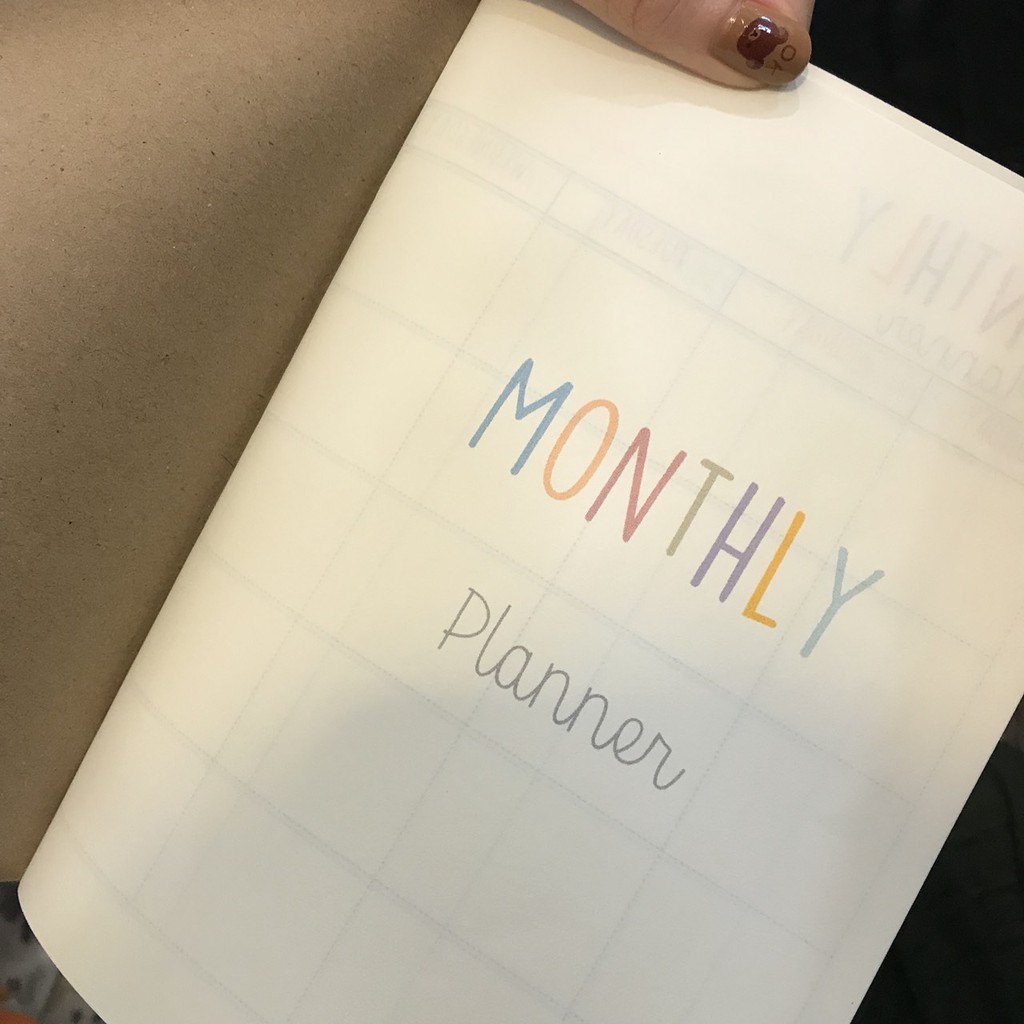 MONTHLY
Planner